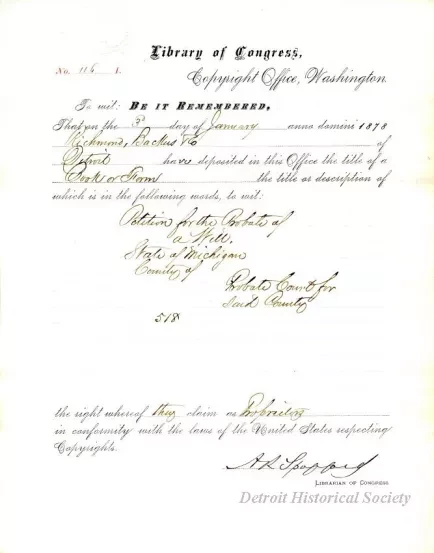 Library of Congress,
No. 116 I.
Copyright Office, Washington.
To wit: BE IT REMEMBERED,
That on the 3 day of January anno domini 1878
Richmond, Backus & Co of
Detroit have deposited in this Office the title of a
Book or Form the title or description of
which is in the following words, to wit:
Petition for the Probate of
a Will.
State of Michigan
County of
Probate Court for
said County
518
the right whereof they claim as Proprietors
in conformity with the laws of the United States respecting
Copyrights.
A R Spofford
LIBRARIAN OF CONGRESS
Detroit Historical Society